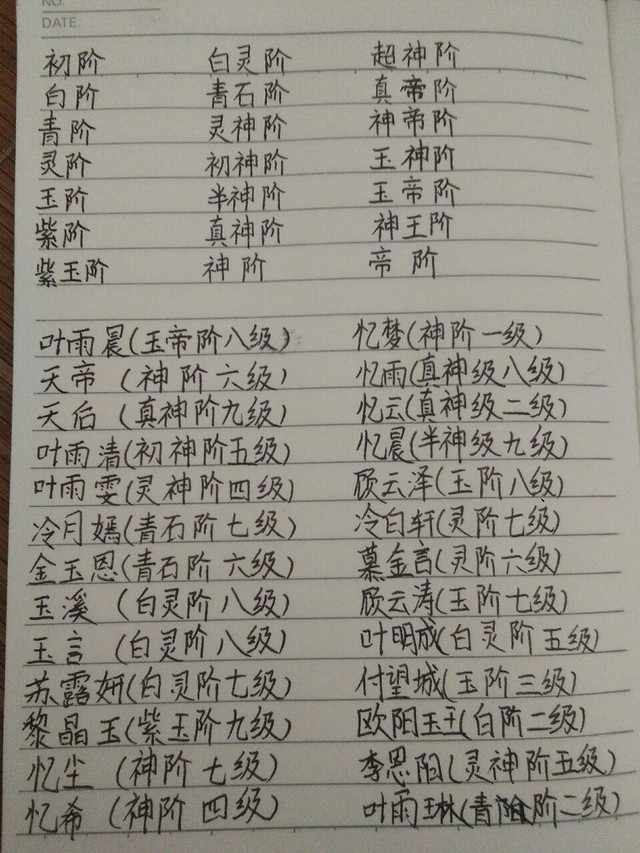 NO.
DATE.
初阶 白灵阶 超神阶
白阶 青石阶 真帝阶
青阶 灵神阶 神帝阶
灵阶 初神阶 王神阶
玉阶 半神阶 玉帝阶
紫阶 真神阶 神王阶
紫玉阶 神阶 帝阶
叶雨晨(玉帝阶八级) 忆梦(神阶一级)
天帝(神阶六级) 忆雨(真神级八级)
天后(真神阶九级) 忆云(真神级二级)
叶雨清(初神阶五级) 忆晨(半神级九级)
叶雨雯(灵神阶四级) 顾云泽(玉阶八级)
冷月嫣(青石阶七级) 冷白轩(灵阶七级)
金玉恩(青石阶六级) 慕金言(灵阶六级)
玉溪(白灵阶八级) 顾云涛(玉阶七级)
玉言(白灵阶八级) 叶明成(白灵阶五级)
苏露妍(白灵阶七级) 付望城(玉阶三级)
黎晶玉(紫玉阶九级) 欧阳玉王(白阶二级)
忆尘(神阶七级) 李恩阳(灵神阶五级)
忆希(神阶四级) 叶雨琳(青阶二级)